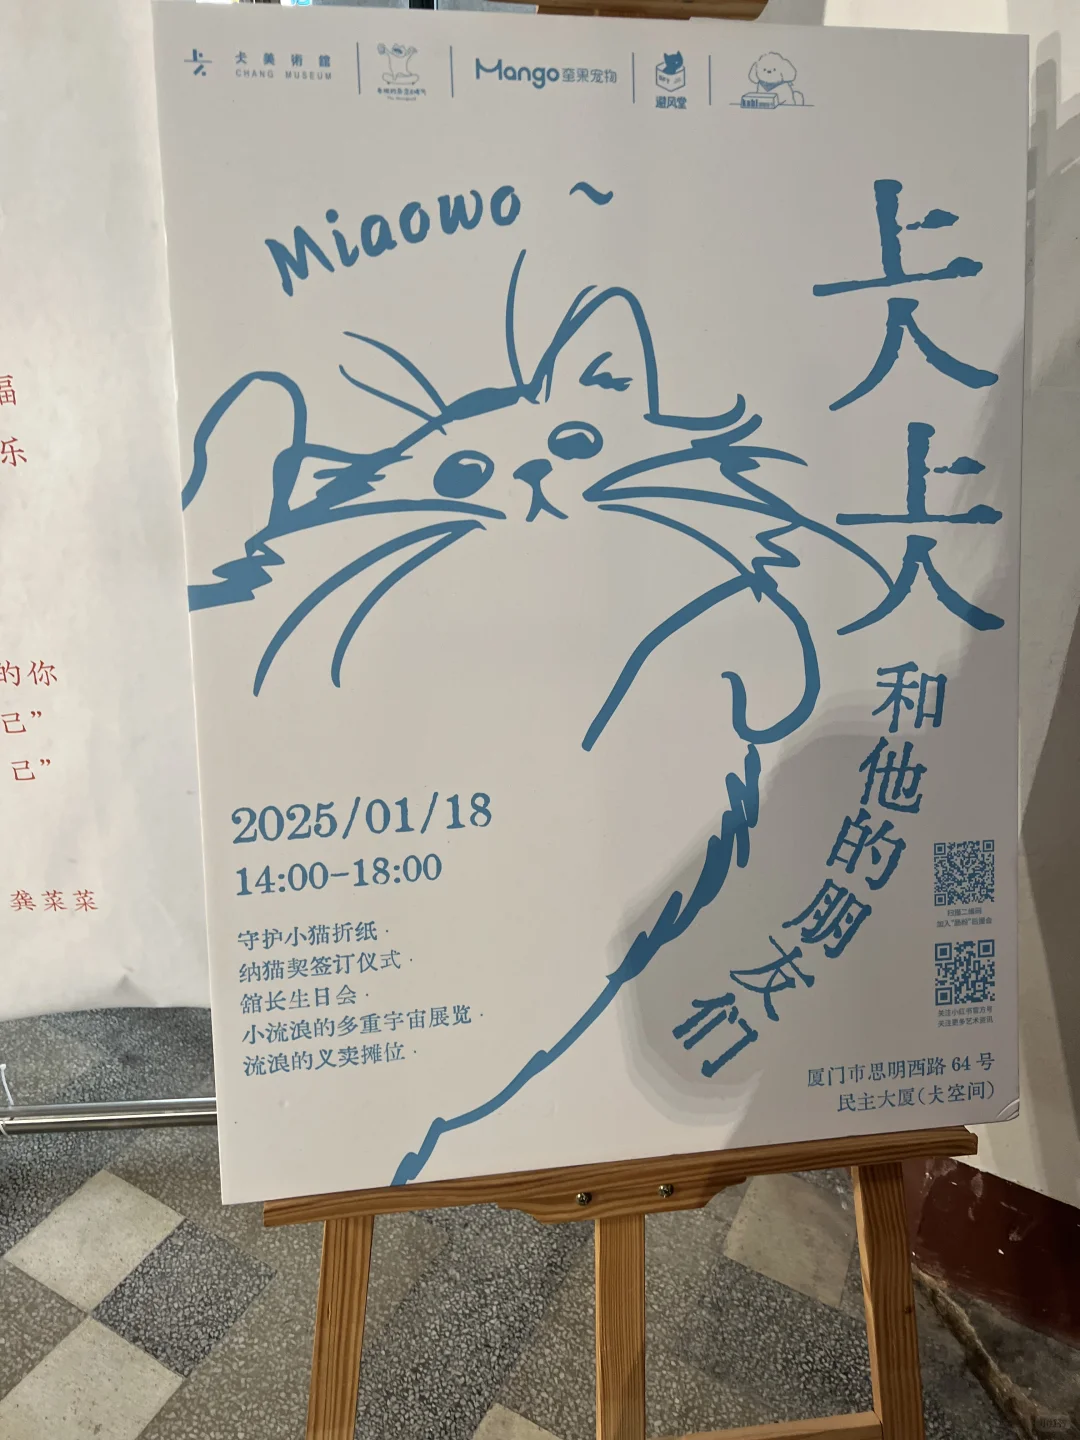 福
乐
的你
己”
己”
龚菜菜
仧美術舘
CHANG MUSEUM
Mango芒果宠物
避风堂
Miaowo ~
仧仧
和他的朋友们
2025/01/18
14:00-18:00
守护小猫折纸·
纳猫契签订仪式·
舘长生日会·
小流浪的多重宇宙展览·
流浪的义卖摊位·
扫描二维码
关注小红书官方号
关注更多艺术资讯
厦门市思明西路 64 号
民主大厦(仧空间)